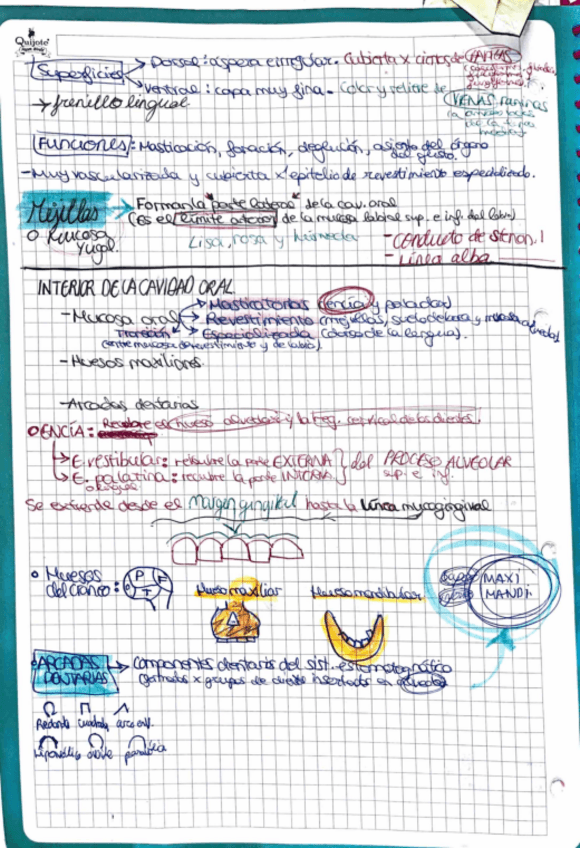 Quijote
Superficies
Dorsal: aspera e irregular. Cubierta x cientos de PAPILAS
ventral: capa muy fina. Color y relieve de VENAS raninas
→ frenillo lingual
Funciones: Masticación, fonación, deglución, asiento del órgano
del gusto.
- Muy vascularizada y cubierta x epitelio de revestimiento especializado.
Mejillas
Forman la parte lateral de la cav. oral
(es el límite externo) de la mucosa labial sup. e inf. del labio)
o Mucosa
Yugal.
Lisa, rosa y húmeda
- conducto de stenon.
- Línea alba
INTERIOR DE LA CAVIDAD ORAL
- Mucosa oral
Masticatorias (encía y paladar)
Revestimiento (mejillas, suelo de boca y
Especializada (dorso de la lengua).
Transición
(entre mucosa de revestimiento y de labio).
- Huesos maxilares.
- Arcadas dentarias
o ENCÍA: Recubre el hueso alveolar y la reg. cervical de los dientes.
E. vestibular: recubre la parte EXTERNA
E. palatina: recubre la parte INTERNA
o lingual
del PROCESO ALVEOLAR
sup. e inf.
Se extiende desde el margen gingival hasta la línea mucogingival
o Huesos
del cráneo:
P
F
O
T
Hueso maxilar
Hueso mandibular
MAXI
MANDI.
o ARCADAS
DENTARIAS
Componentes dentarias del sist. estomatognático
formadas x grupos de diente insertados en alveolos
Redonda cuadrada
Hiperbólica parabólica